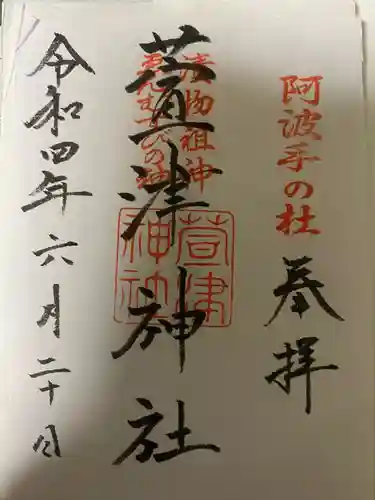 阿波手の杜
奉拝
漬物祖神
えんむすびの神
萱津神社
萱津
神社
令和四年六月二十日